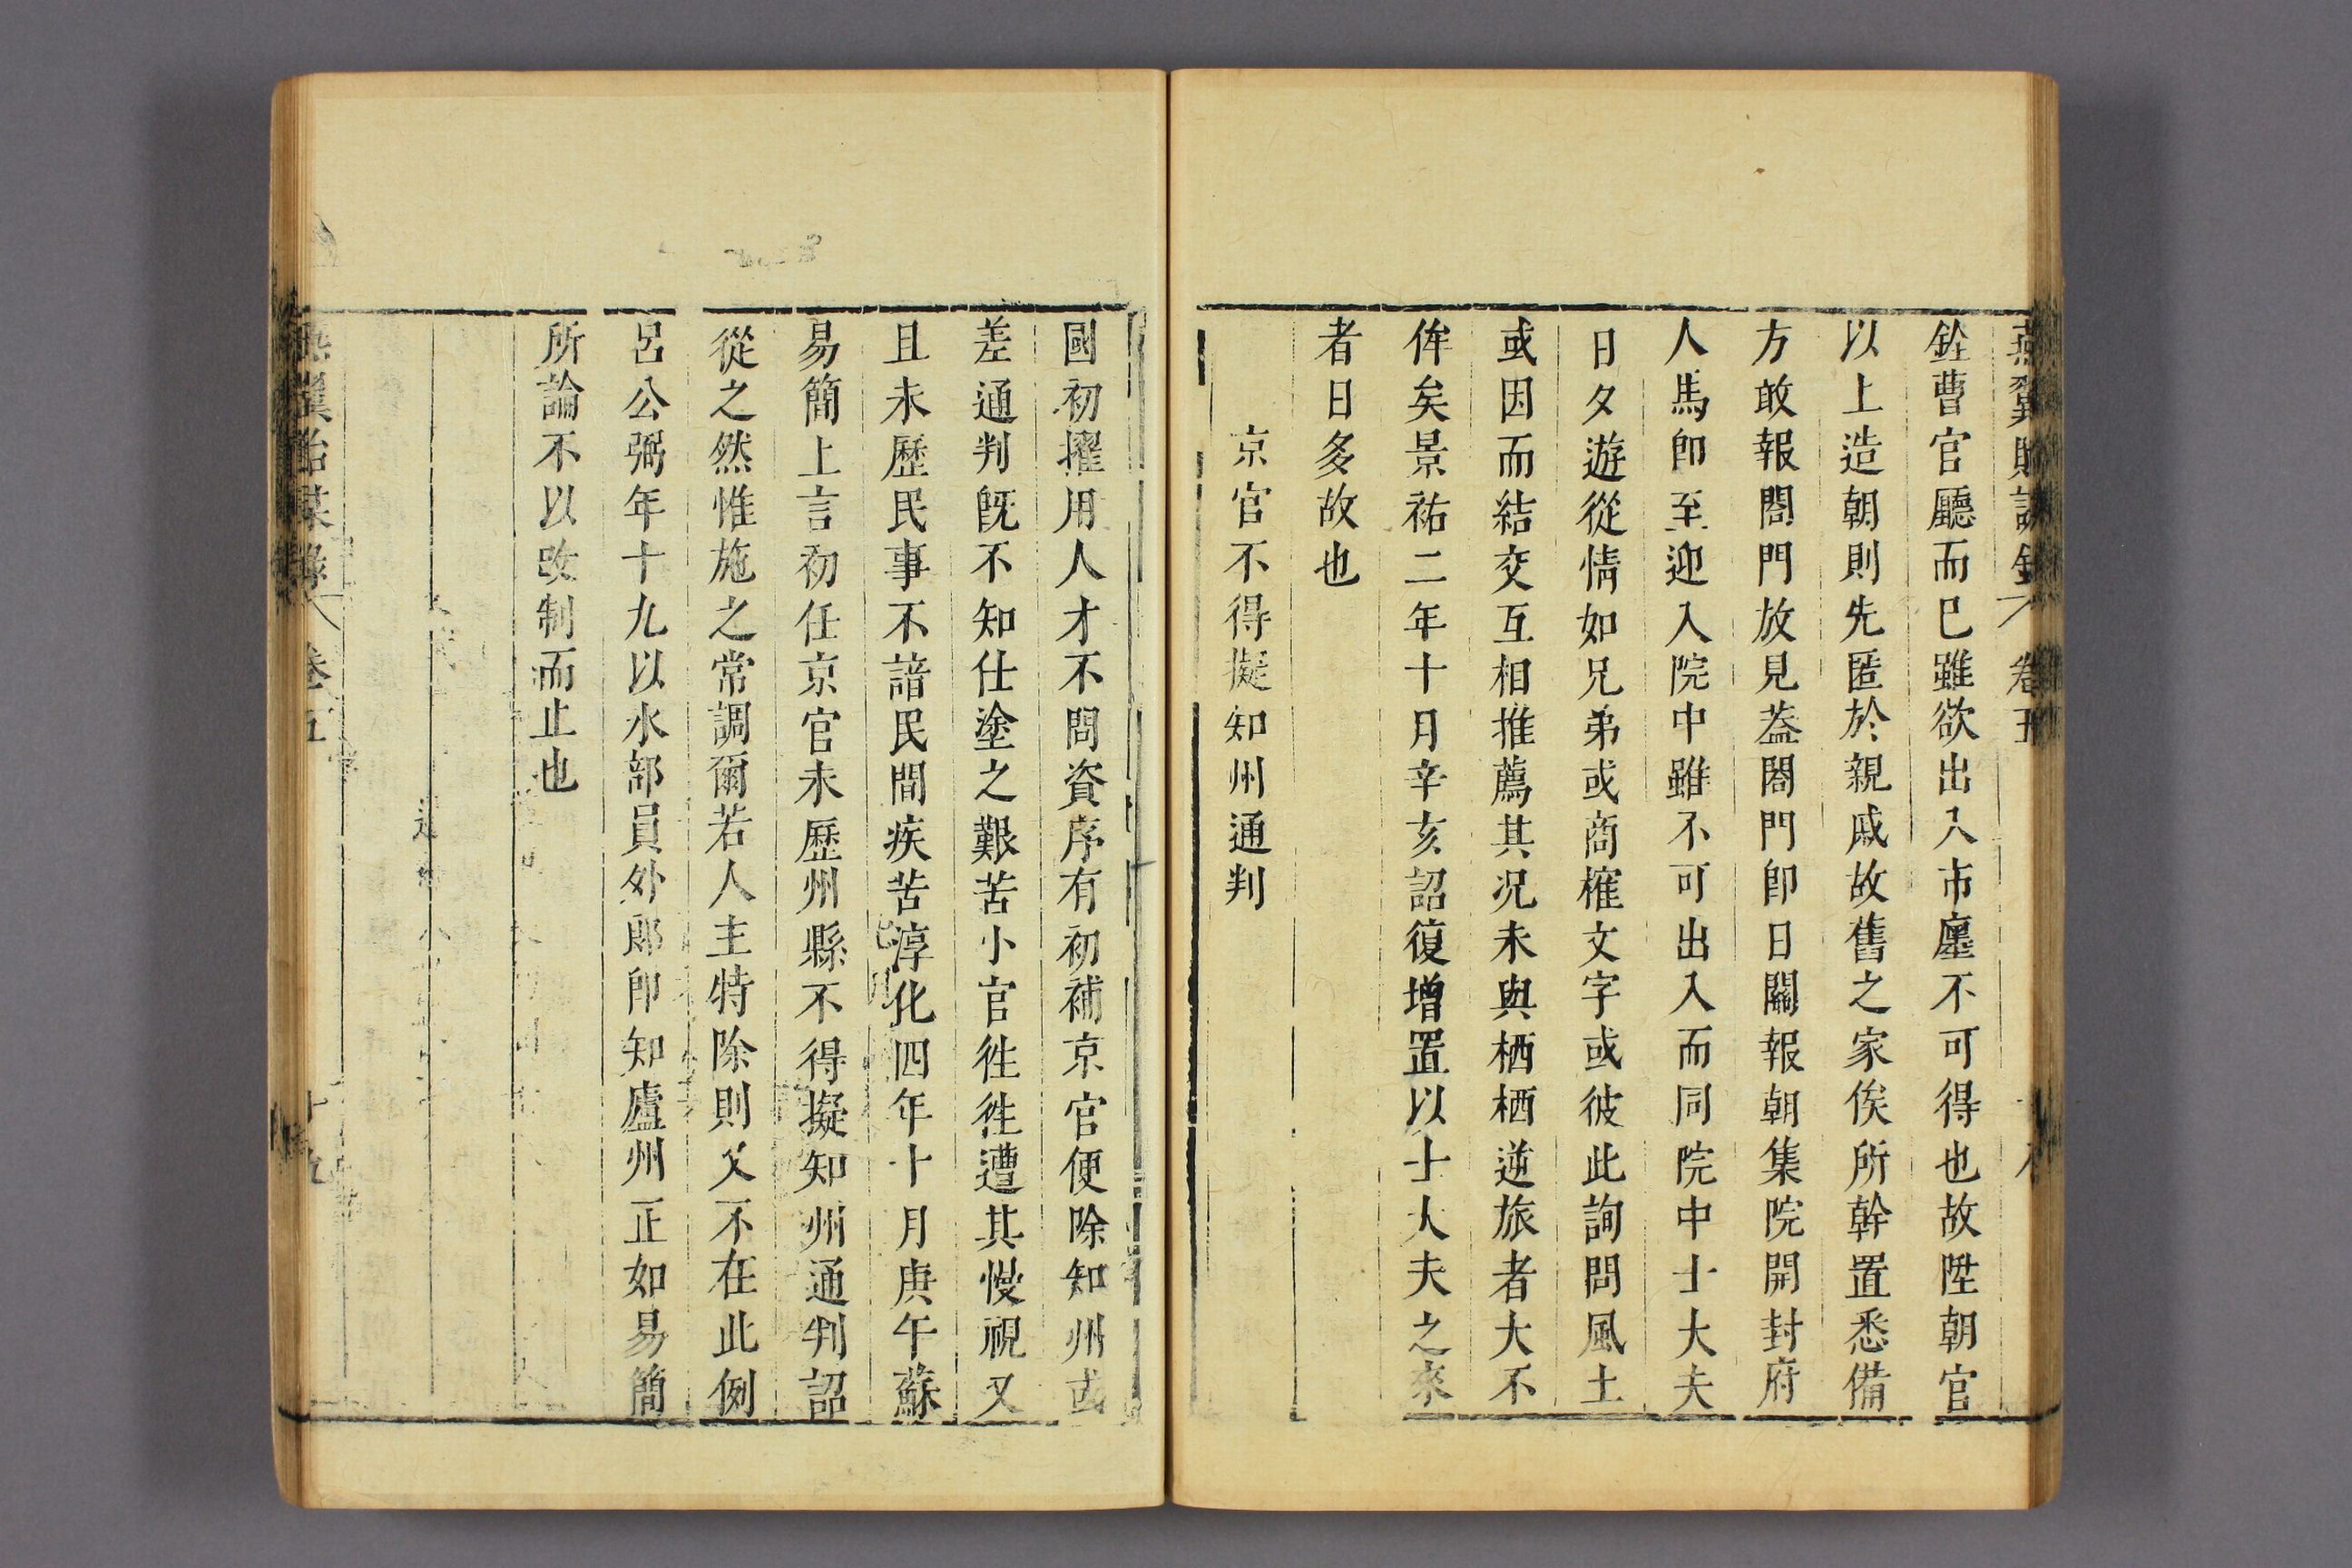 燕翼貽謀錄 卷五
銓曹官廳而已雖欲出入市廛不可得也故陞朝官
以上造朝則先匿於親戚故舊之家俟所幹置悉備
方敢報閤門放見葢閤門即日關報朝集院開封府
人馬即至迎入院中雖不可出入而同院中士大夫
日夕遊從情如兄弟或商榷文字或彼此詢問風土
或因而結交互相推薦其況未與栖栖逆旅者大不
侔矣景祐二年十月辛亥詔復增置以士大夫之來
者日多故也
京官不得擬知州通判
國初擢用人才不問資序有初補京官便除知州或
差通判旣不知仕塗之艱苦小官徃徃遭其慢視又
且未歷民事不諳民間疾苦淳化四年十月庚午蘇
易簡上言初任京官未歷州縣不得擬知州通判詔
從之然惟施之常調爾若人主特除則又不在此例
呂公弼年十九以水部員外郎即知廬州正如易簡
所論不以改制而止也
燕翼貽謀錄 卷五 十九